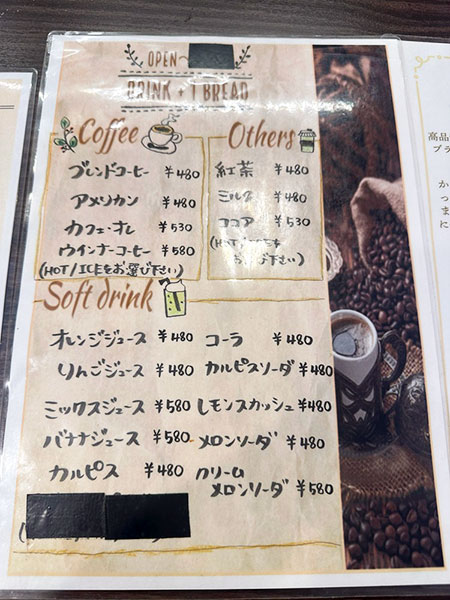 OPEN~
DRINK + 1 BREAD
Coffee
ブレンドコーヒー ¥480
アメリカン ¥480
カフェ・オレ ¥530
ウインナーコーヒー ¥580
(HOT / ICEをお選び下さい)
Others
紅茶 ¥480
ミルク ¥480
ココア ¥530
(HOT
下さい)
Soft drink
オレンジジュース ¥480
りんごジュース ¥480
ミックスジュース ¥580
バナナジュース ¥580
カルピス ¥480
コーラ ¥480
カルピスソーダ ¥480
レモンスカッシュ ¥480
メロンソーダ ¥480
クリーム
メロンソーダ ¥580
高品
ブラ
か
っ
ま
に